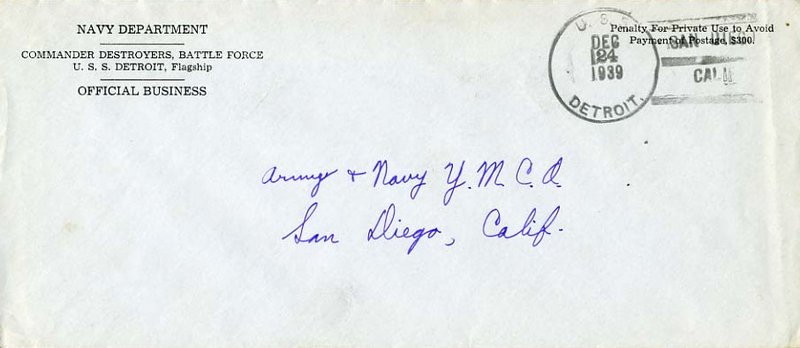 NAVY DEPARTMENT
COMMANDER DESTROYERS, BATTLE FORCE
U. S. S. DETROIT, Flagship
OFFICIAL BUSINESS
Penalty For Private Use to Avoid
Payment of Postage, $300.
U. S.
DEC
24
1939
DETROIT.
SAN
CAL
Army + Navy Y. M. C. A.
San Diego, Calif.